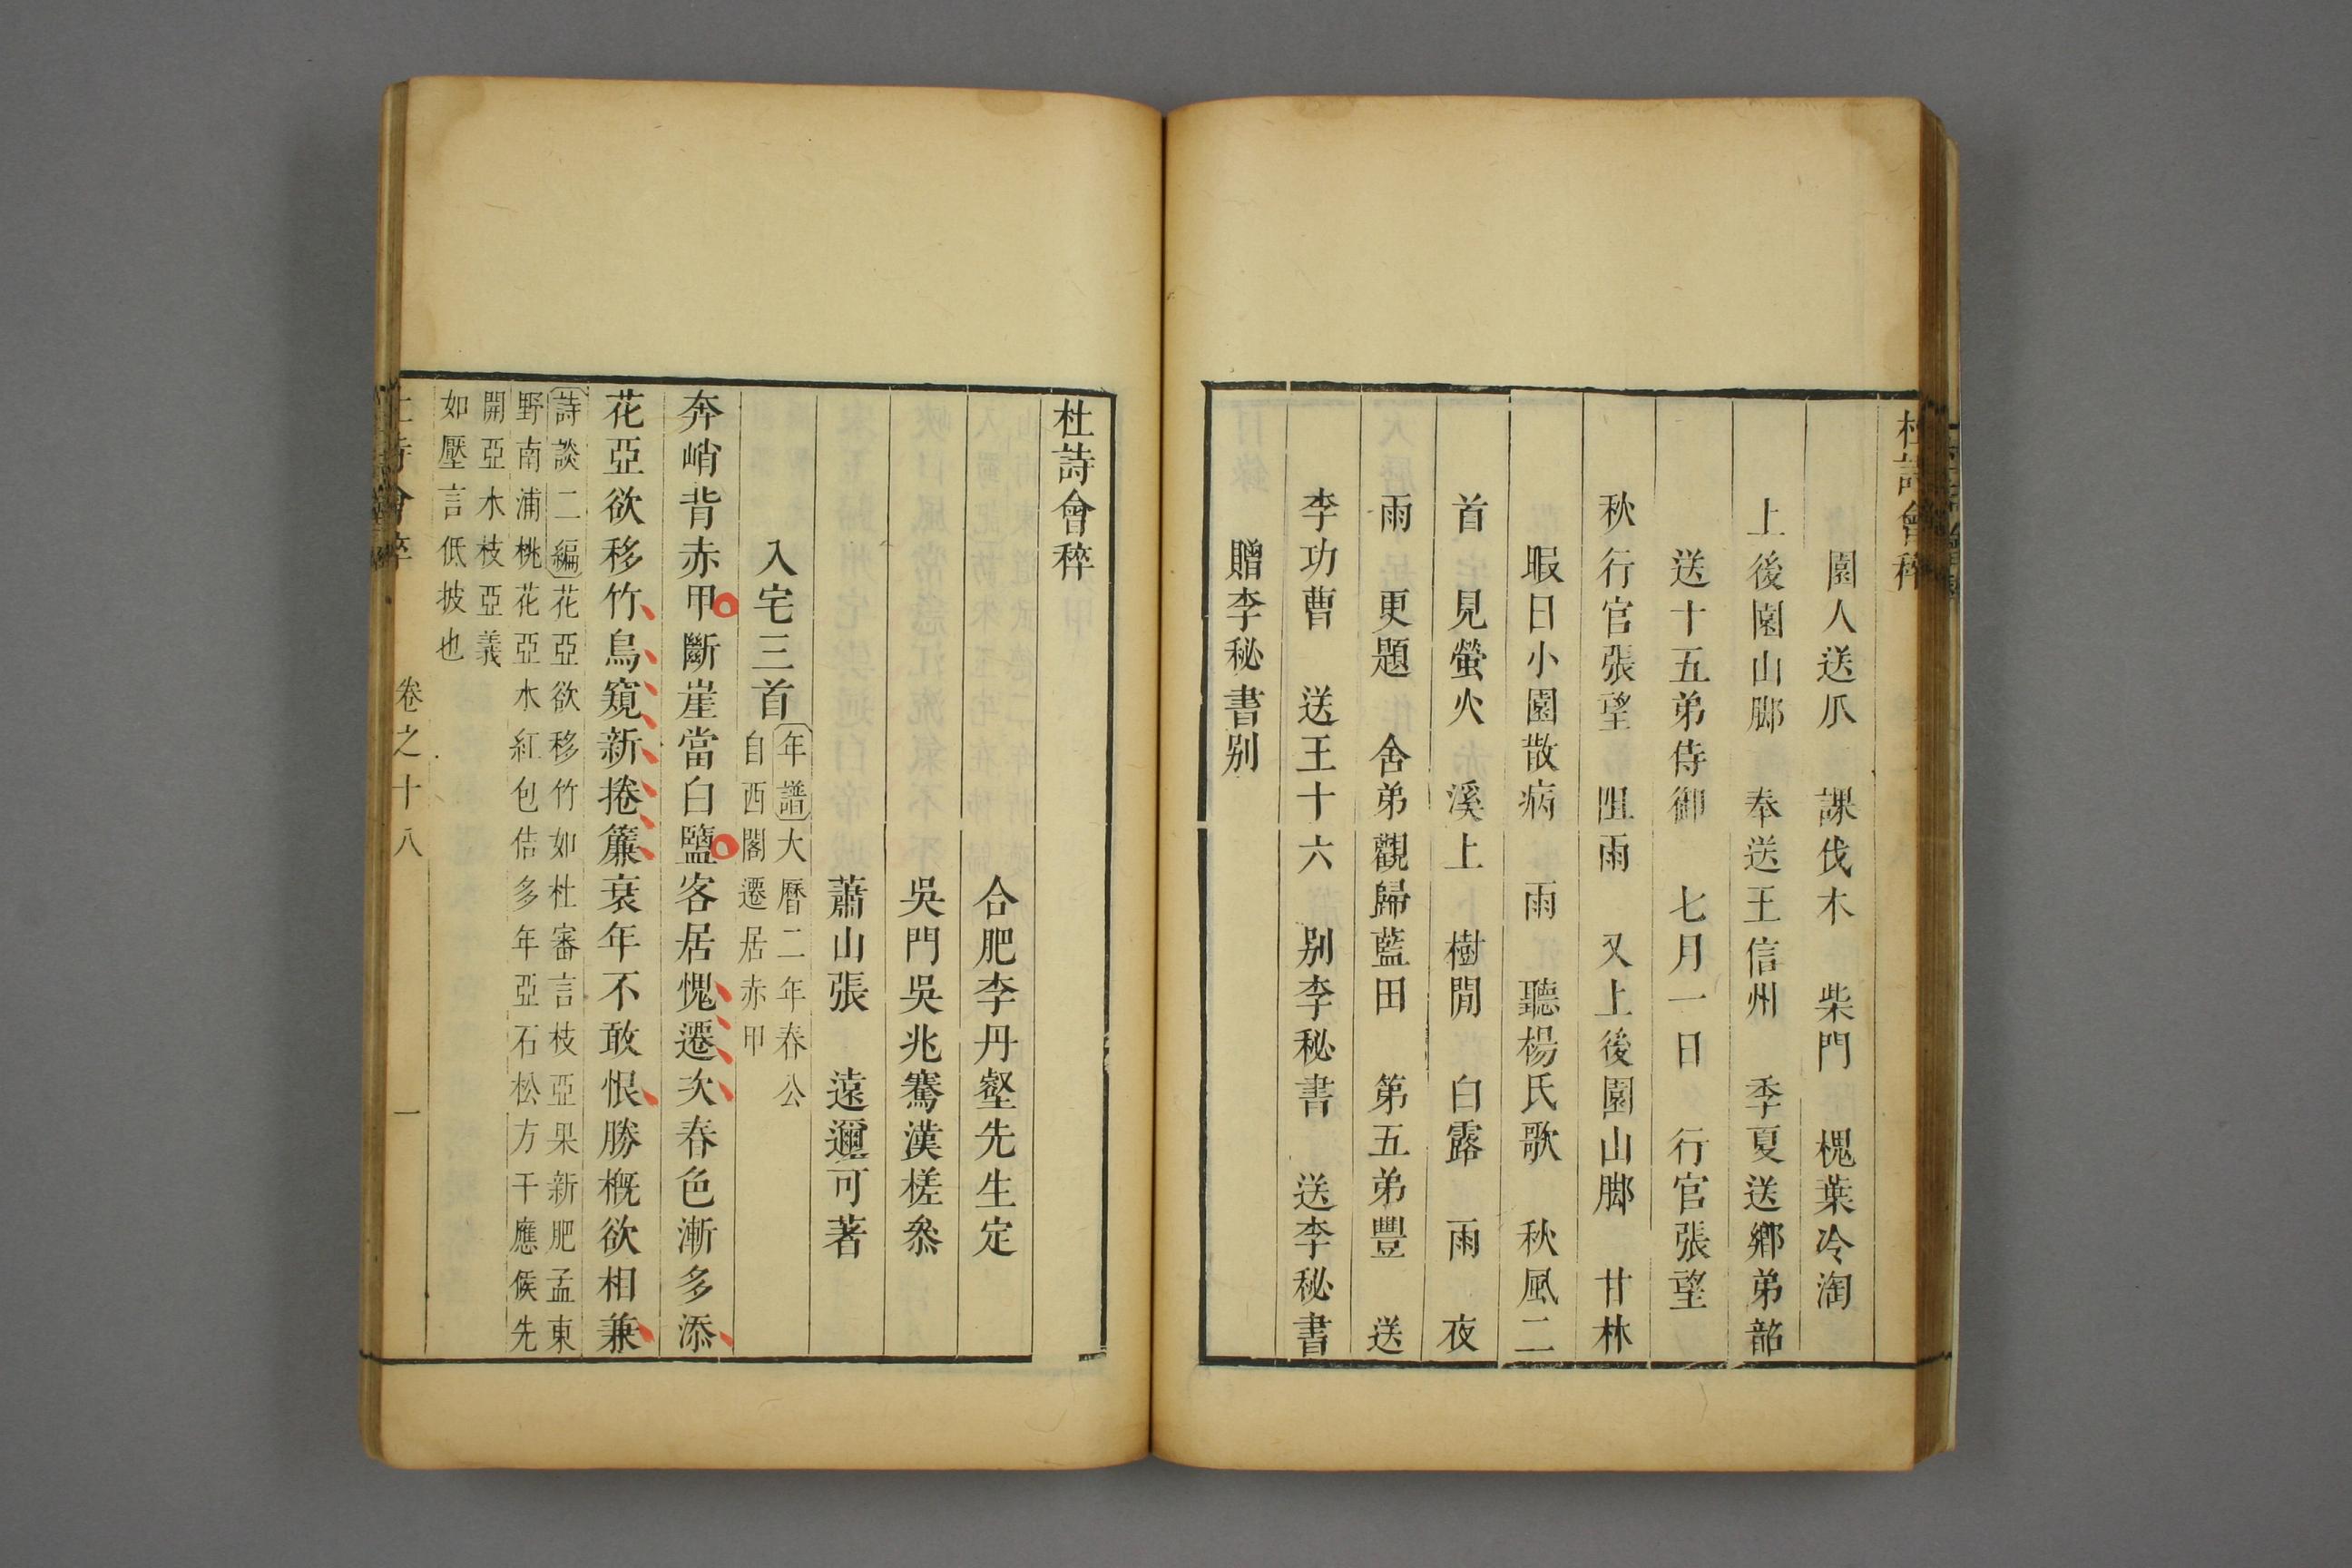 杜詩會稡
園人送瓜　課伐木　柴門　槐葉冷淘
上後園山脚　奉送王信州　季夏送鄉弟韶
送十五弟侍御　七月一日　行官張望
秋行官張望　阻雨　又上後園山脚　甘林
暇日小園散病　雨　聽楊氏歌　秋風二
首　見螢火　溪上　樹閒　白露　雨　夜
雨　更題　舍弟觀歸藍田　第五弟豐　送
李功曹　送王十六　别李秘書　送李秘書
贈李秘書别
杜詩會稡
合肥李丹壑先生定
吳門吳兆騫漢槎叅
蕭山張　遠邇可著
入宅三首
年譜大曆二年春公
自西閣遷居赤甲
奔峭背赤甲斷崖當白鹽客居愧遷次春色漸多添
花亞欲移竹鳥窺新捲簾衰年不敢恨勝概欲相兼
詩談二編花亞欲移竹如杜審言枝亞果新肥孟東
野南浦桃花亞水紅包佶多年亞石松方干應候先
開亞木枝亞義
如壓言低披也
會稡　卷之十八　一